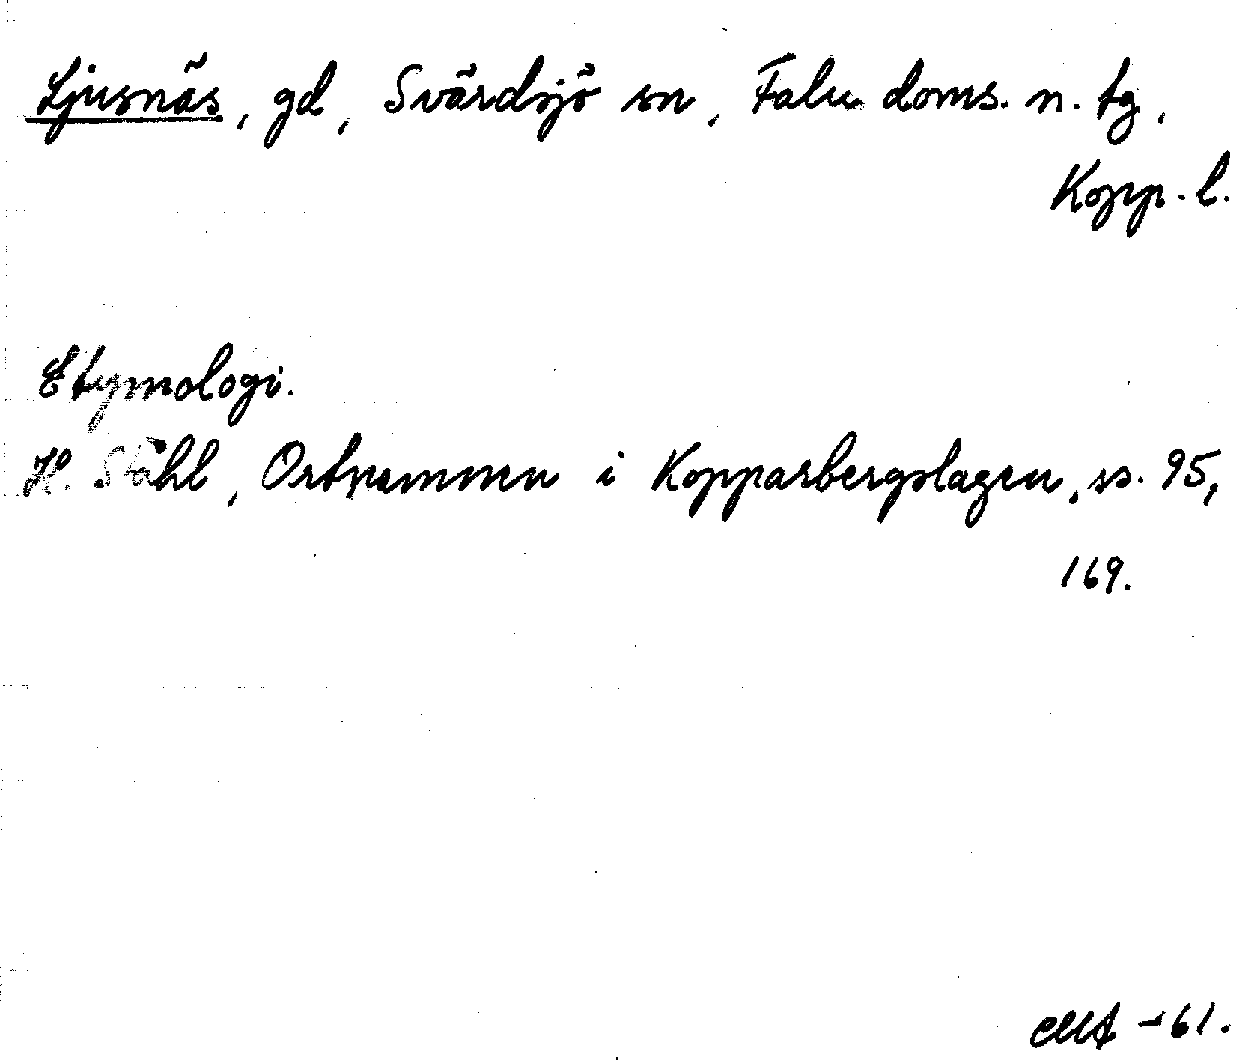 Ljusnäs, gd, Svärdsjö sn, Falu doms. n. tg,
Kopp. l.
Etymologi.
H. Ståhl, Ortnamnen i Kopparbergslagen, ss. 95,
169.
-61.